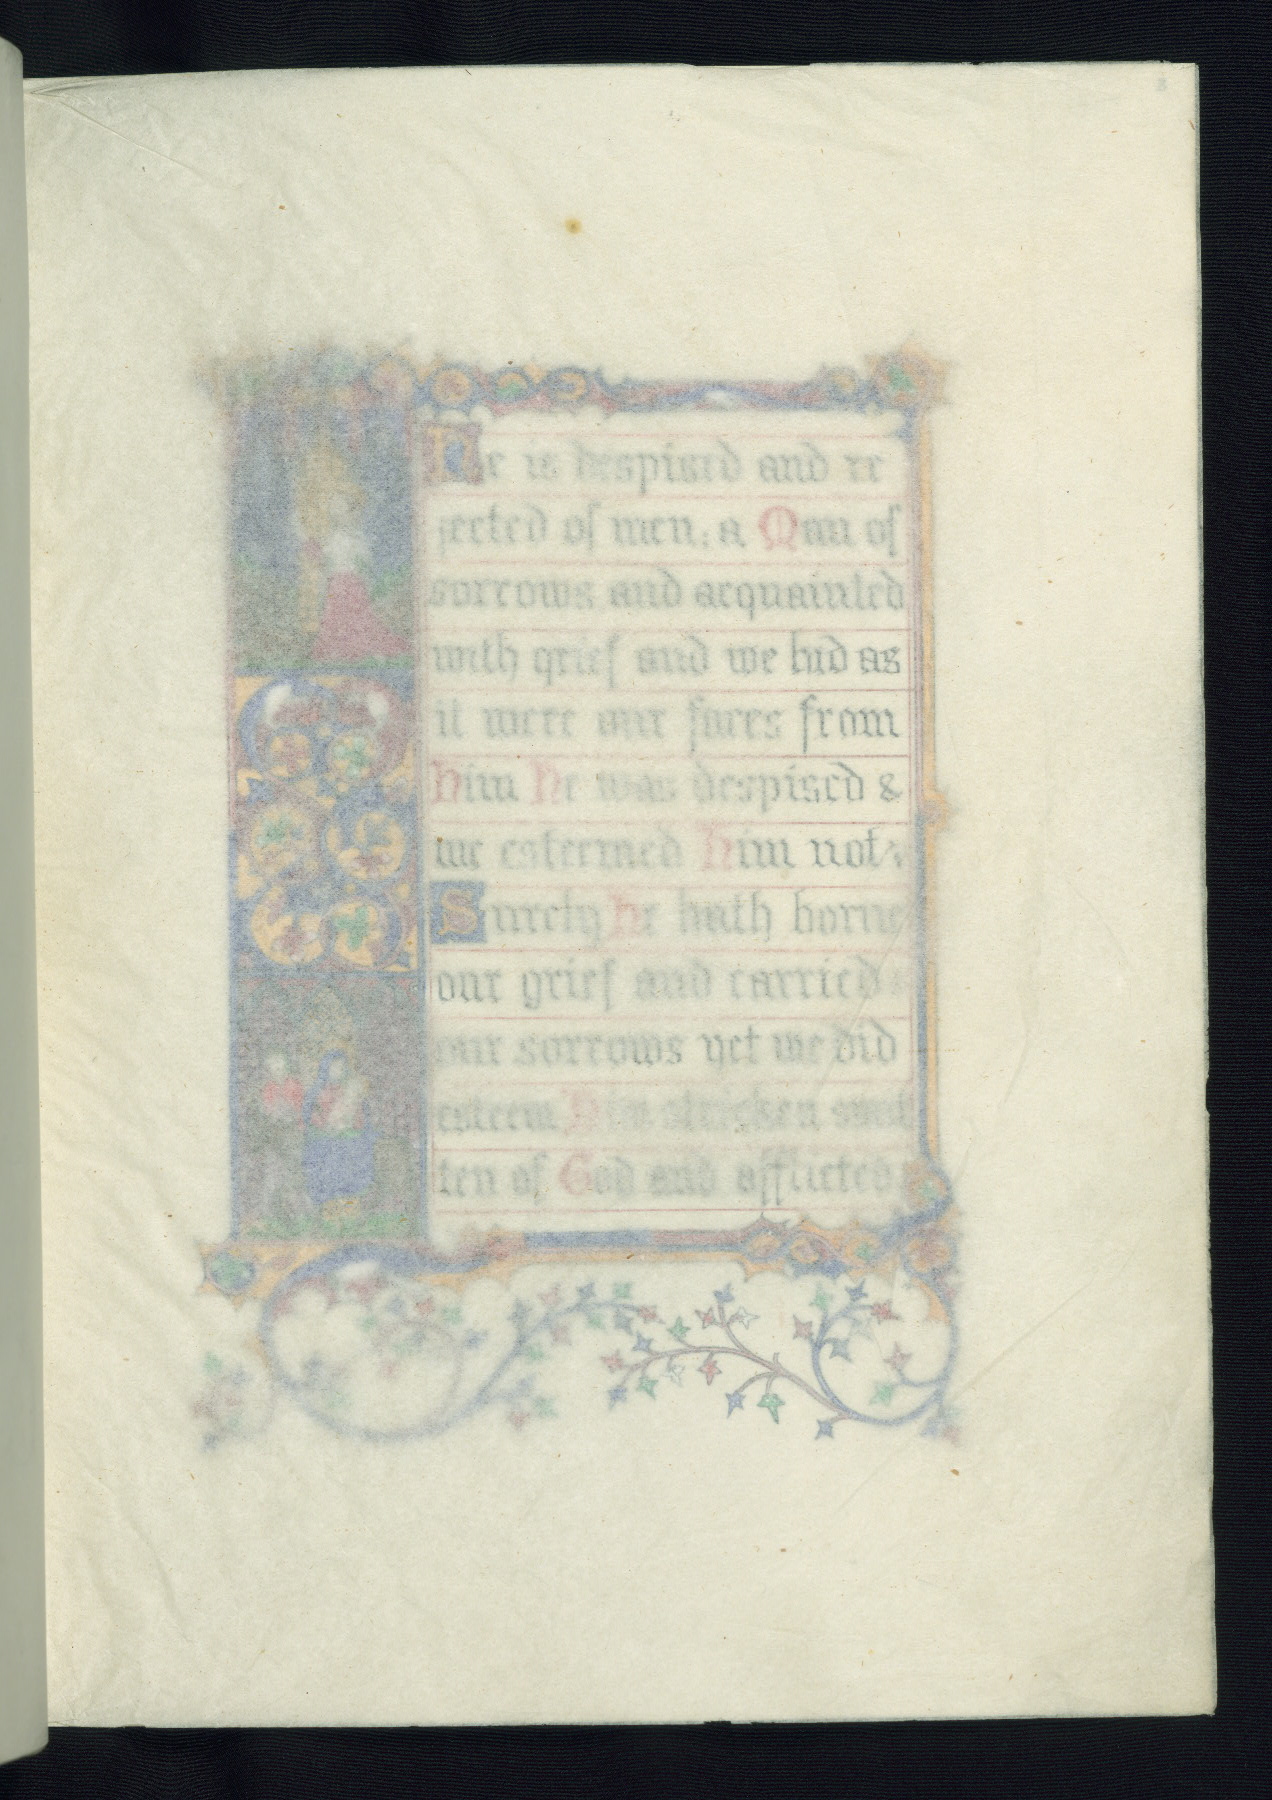 He is despised and re
jected of men: a Man of
sorrows and acquainted
with grief and we hid as
it were our faces from
Him He was despised &
we esteemed Him not
Surely He hath borne
our grief and carried
our sorrows yet we did
esteem Him stricken smit
ten of God and afflicted